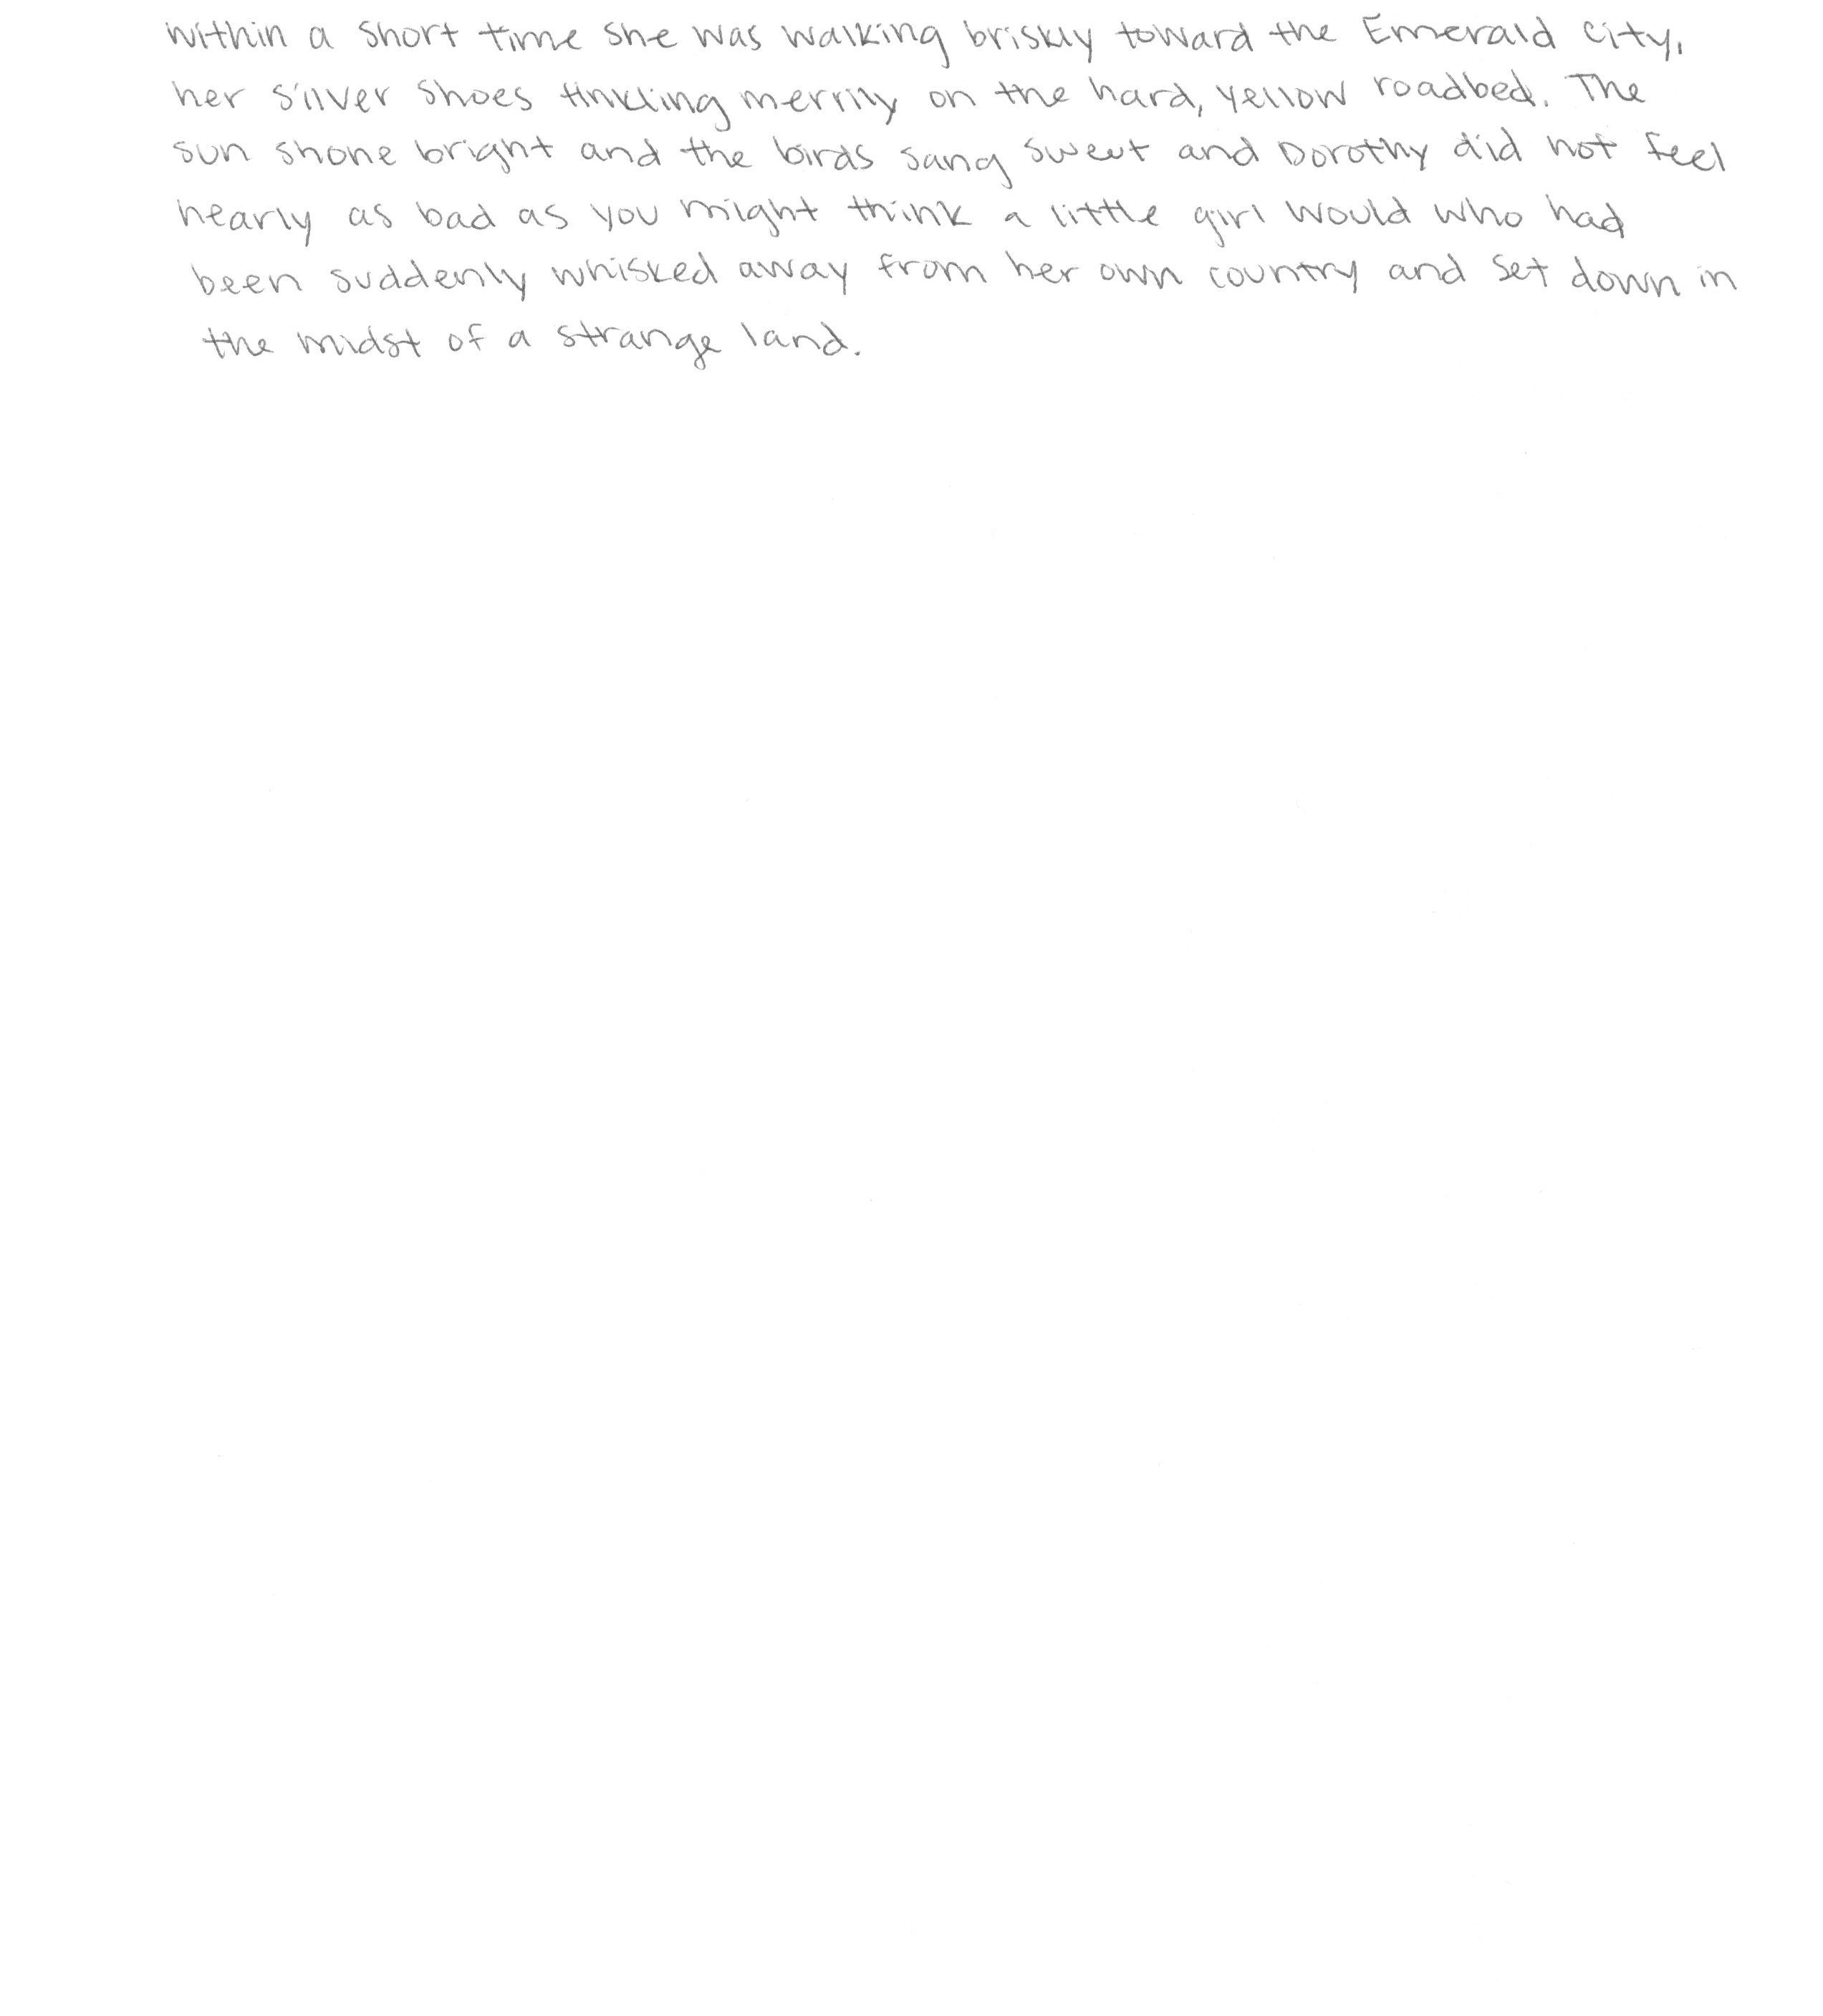 within a short time she was walking briskly toward the Emerald City,
her silver shoes tinkling merrily on the hard, yellow roadbed. The
sun shone bright and the birds sang sweet and Dorothy did not feel
nearly as bad as you might think a little girl would who had
been suddenly whisked away from her own country and set down in
the midst of a strange land.